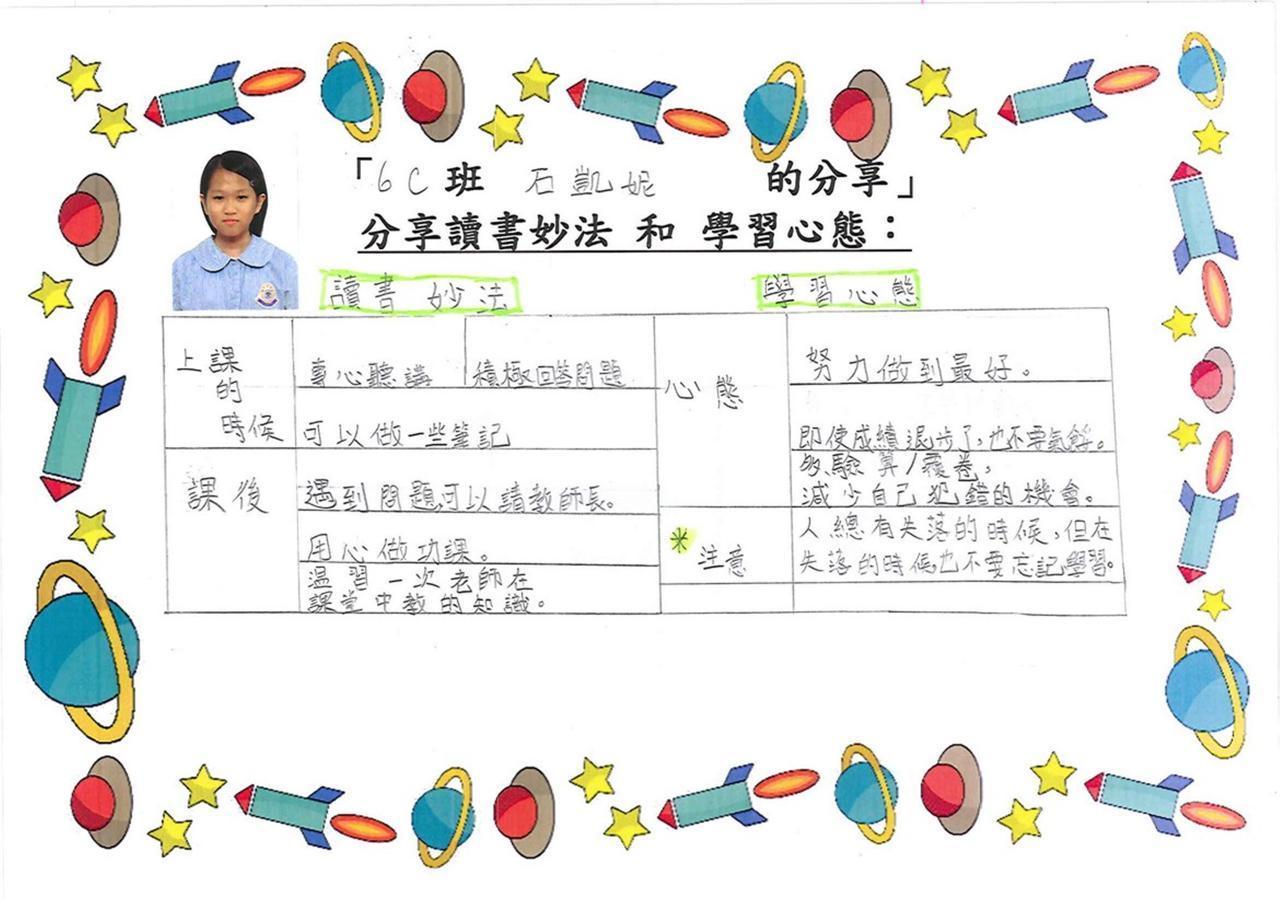 「6C班 石凱妮 的分享」
分享讀書妙法 和 學習心態：
讀書妙法
學習心態
上課
的
時候
專心聽講
積極回答問題
可以做一些筆記
課後
遇到問題,可以請教師長。
用心做功課。
溫習一次老師在
課堂中教的知識。
心態
努力做到最好。
即使成績退步了,也不要氣餒。
驗算/覆卷,
減少自己犯錯的機會。
* 注意
人總有失落的時候,但在
失落的時候,也不要忘記學習。